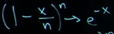 (1 - x/n)^n → e^{-x}